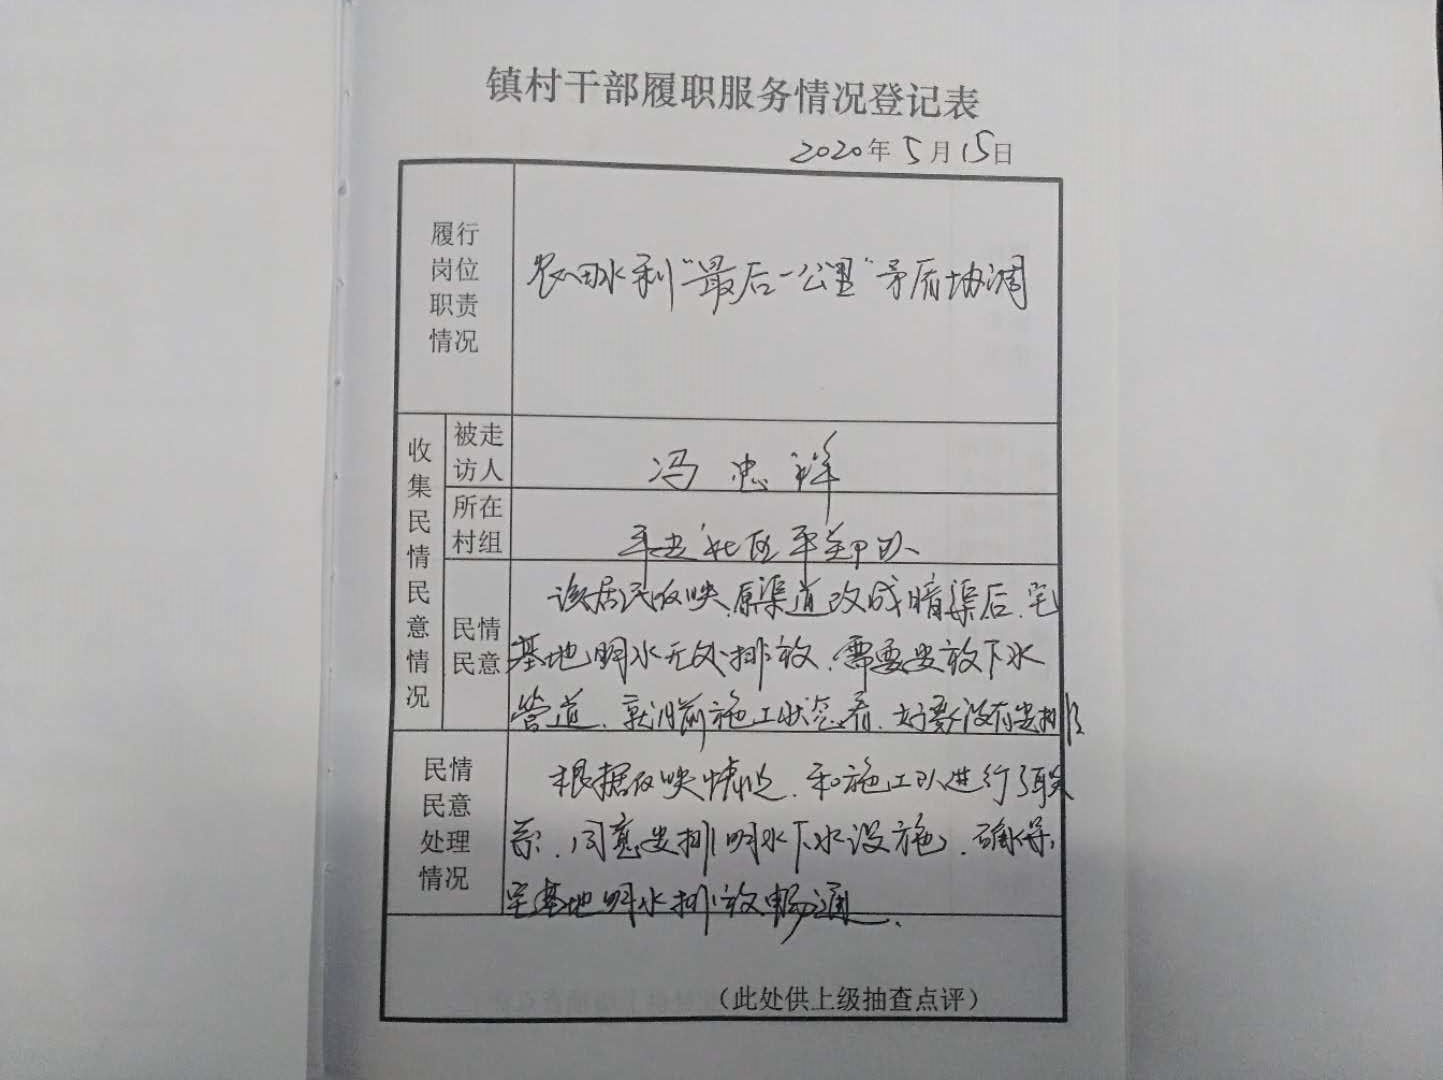 镇村干部履职服务情况登记表
2020年5月15日
履行
岗位
职责
情况
农田水利“最后一公里”矛盾协调
收集民情民意情况
被走
访人
冯忠祥
所在
村组
社区平
民情
民意
该居民反映,原渠道改成暗渠后,宅
基地明水无处排放,需要安放下水
管道,就目前施工状态看,好像没有安排
民情
民意
处理
情况
根据反映情况,和施工队进行了联
系,同意安排明水下水设施,确保
宅基地明水排放畅通。
(此处供上级抽查点评)